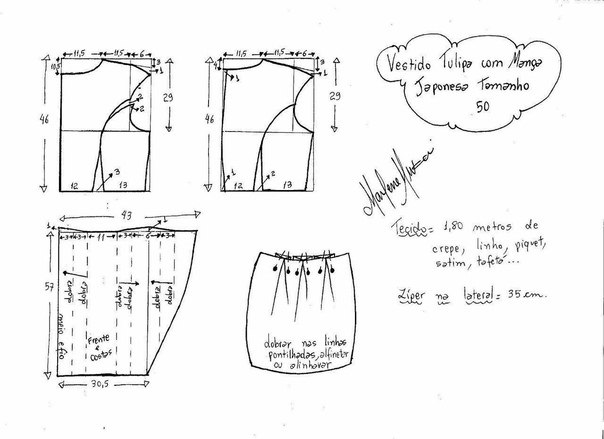 11,5 11,5 6
10,5
3
1
46
29
2
2
3
12 13
11,5 11,5 6
4
3
1
1
46
29
1
3
12 13
Vestido Tulipa com Manga
Japonesa Tamanho
50
Marlene Mukai
Tecido = 1,80 metros de
crepe, linho, piquet,
satim, tafetá...
Zíper na lateral = 35 cm.
43
1
1
3 3 11 3 6 3
57
dobra
dobra
dobra
dobra
dobra
dobra
meio e fio
Frente
e
costas
30,5
dobrar nas linhas
pontilhadas, alfinetar
ou alinhavar